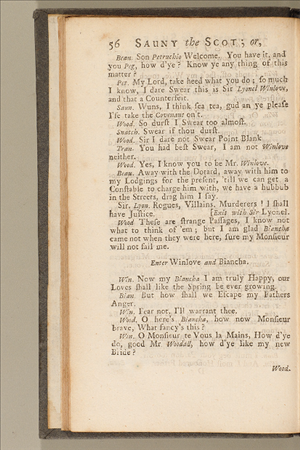 56 SAUNY the SCOT; or,
Beau. Son Petruchio Welcome. You have it, and
you Peg, how d'ye? Know ye any thing of this
matter?
Pet. My Lord, take heed what you do; so much
I know, I dare Swear this is Sir Lyonel Winlove,
and that a Counterfeit.
Saun. Wuns, I think sea tea, gud an ye please
I'se take the Covenant on't.
Wood. So durst I Swear too almost.
Snatch. Swear if thou durst.
Wood. Sir I dare not Swear Point Blank
Tran. You had best Swear, I am not Winlove
neither.
Wood. Yes, I know you to be Mr. Winlove.
Beau. Away with the Dotard, away with him to
my Lodgings for the present, 'till we can get a
Constable to charge him with, we have a hubbub
in the Streets, drag him I say.
Sir. Lyon. Rogues, Villains, Murderers! I shall
have Justice. [Exit with Sir Lyonel.
Wood These are strange Passages, I know not
what to think of 'em; but I am glad Biancha
came not when they were here, sure my Monsieur
will not fail me.
Enter Winlove and Biancha.
Win. Now my Biancha I am truly Happy, our
Loves shall like the Spring be ever growing.
Bian. But how shall we Escape my Fathers
Anger.
Win. Fear not, I'll warrant thee.
Wood. O here's Biancha, how now Monsieur
brave, What fancy's this?
Win. O Monsieur te Vous la Mains, How d'ye
do, good Mr Woodall, how d'ye like my new
Bride?
Wood.